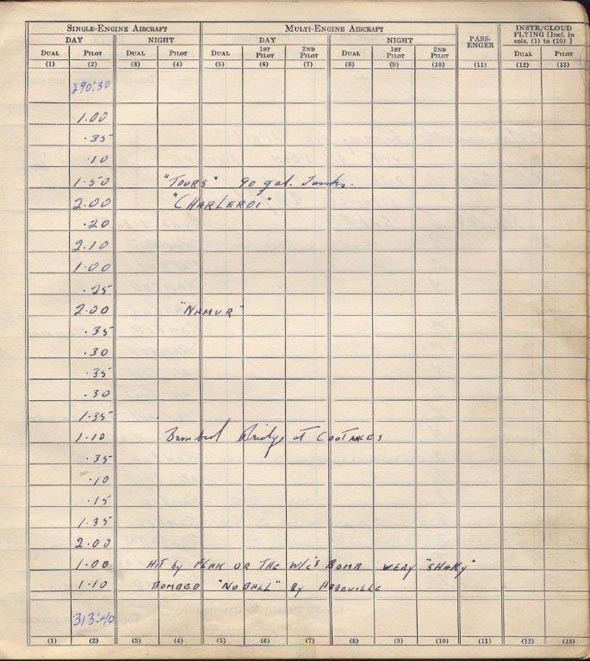 SINGLE-ENGINE AIRCRAFT MULTI-ENGINE AIRCRAFT PASS-ENGER INSTR/CLOUD FLYING [Incl. in cols. (1) to (10) ]
DAY NIGHT DAY NIGHT
DUAL PILOT DUAL PILOT DUAL 1ST PILOT 2ND PILOT DUAL 1ST PILOT 2ND PILOT DUAL PILOT
(1) (2) (3) (4) (5) (6) (7) (8) (9) (10) (11) (12) (13)
290:30
1.00
.35
.10
1.50 "TOURS" 90 gal. Tanks.
2.00 "CHARLEROI"
.20
2.10
1.00
.25
2.00 "NAMUR"
.35
.30
.35
.30
1.35
1.10 Bombed Bridge at
.35
.10
.15
1.35
2.00
1.00 HIT BY FLAK OR THE W/C'S BOMB VERY "SHAKY"
1.10 BOMBED "NOBALL" BY
313:40
(1) (2) (3) (4) (5) (6) (7) (8) (9) (10) (11) (12) (13)